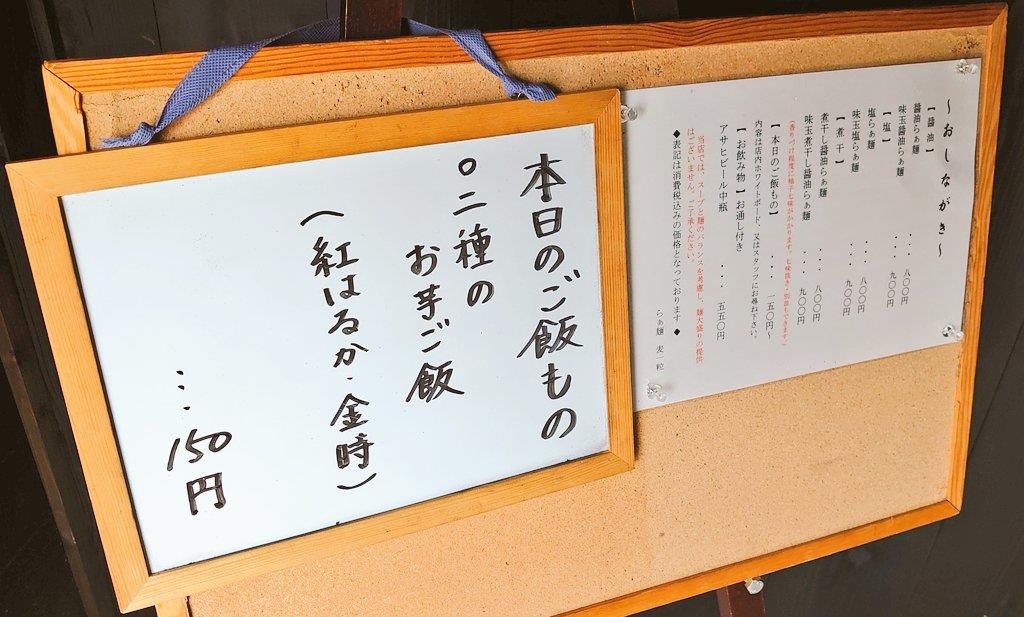 本日のご飯もの
○二種の
お芋ご飯
(紅はるか・金時)
・・・150円
～おしながき～
【醤油】
醤油らぁ麺 ・・・ 八〇〇円
味玉醤油らぁ麺 ・・・ 九〇〇円
【塩】
塩らぁ麺 ・・・ 八〇〇円
味玉塩らぁ麺 ・・・ 九〇〇円
【煮干】
煮干し醤油らぁ麺 ・・・ 八〇〇円
味玉煮干し醤油らぁ麺 ・・・ 九〇〇円
(香りづけ程度に柚子七味がかかります。七味抜き・別皿もできます。)
【本日のご飯もの】 ・・・ 一五〇円～
内容は店内ホワイトボード、又はスタッフにお尋ね下さい。
【お飲み物】お通し付き
アサヒビール中瓶 ・・・ 五五〇円
当店では、スープと麺のバランスを考慮し、麺大盛りの提供
はございません。ご了承ください。
◆表記は消費税込みの価格となっております◆
らぁ麺 麦一粒